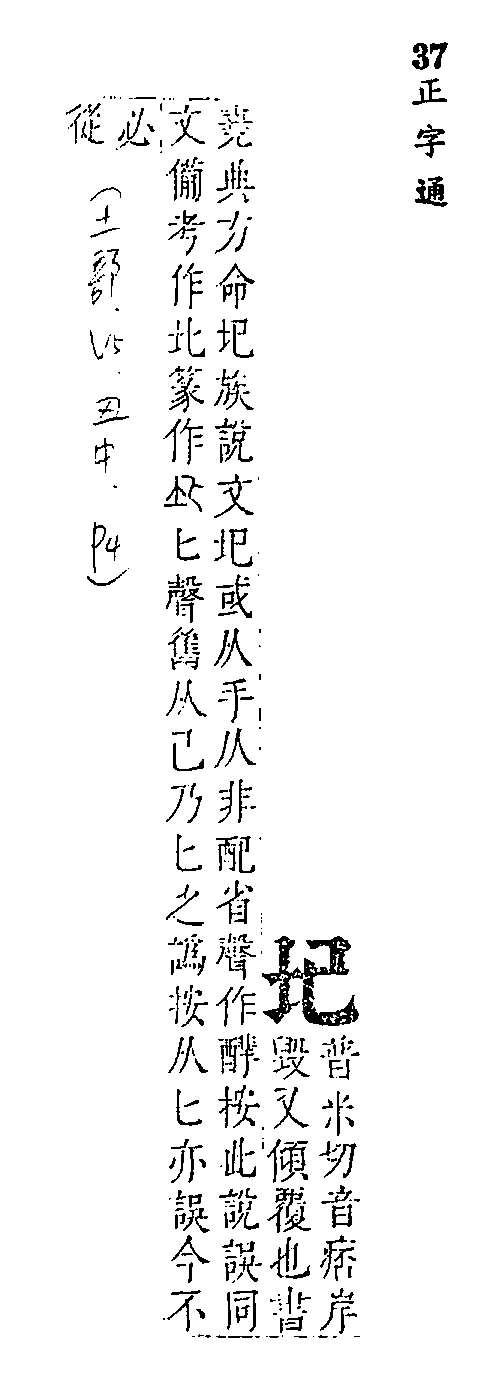 37正字通
圮
普米切音痞岸
毀又傾覆也書
堯典方命圮族說文圮或从手从非配省聲作按此說誤同
文備考作篆作匕聲舊从己乃匕之譌按从匕亦誤今不
必
從
(土部.1/5.丑中.P4)